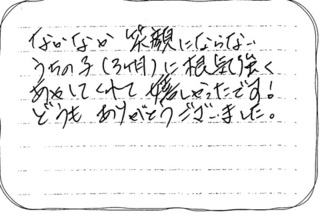 なかなか笑顔にならない
うちの子(3ヶ月)に根気強く
あやしてくれて嬉しかったです!
どうもありがとうございました。